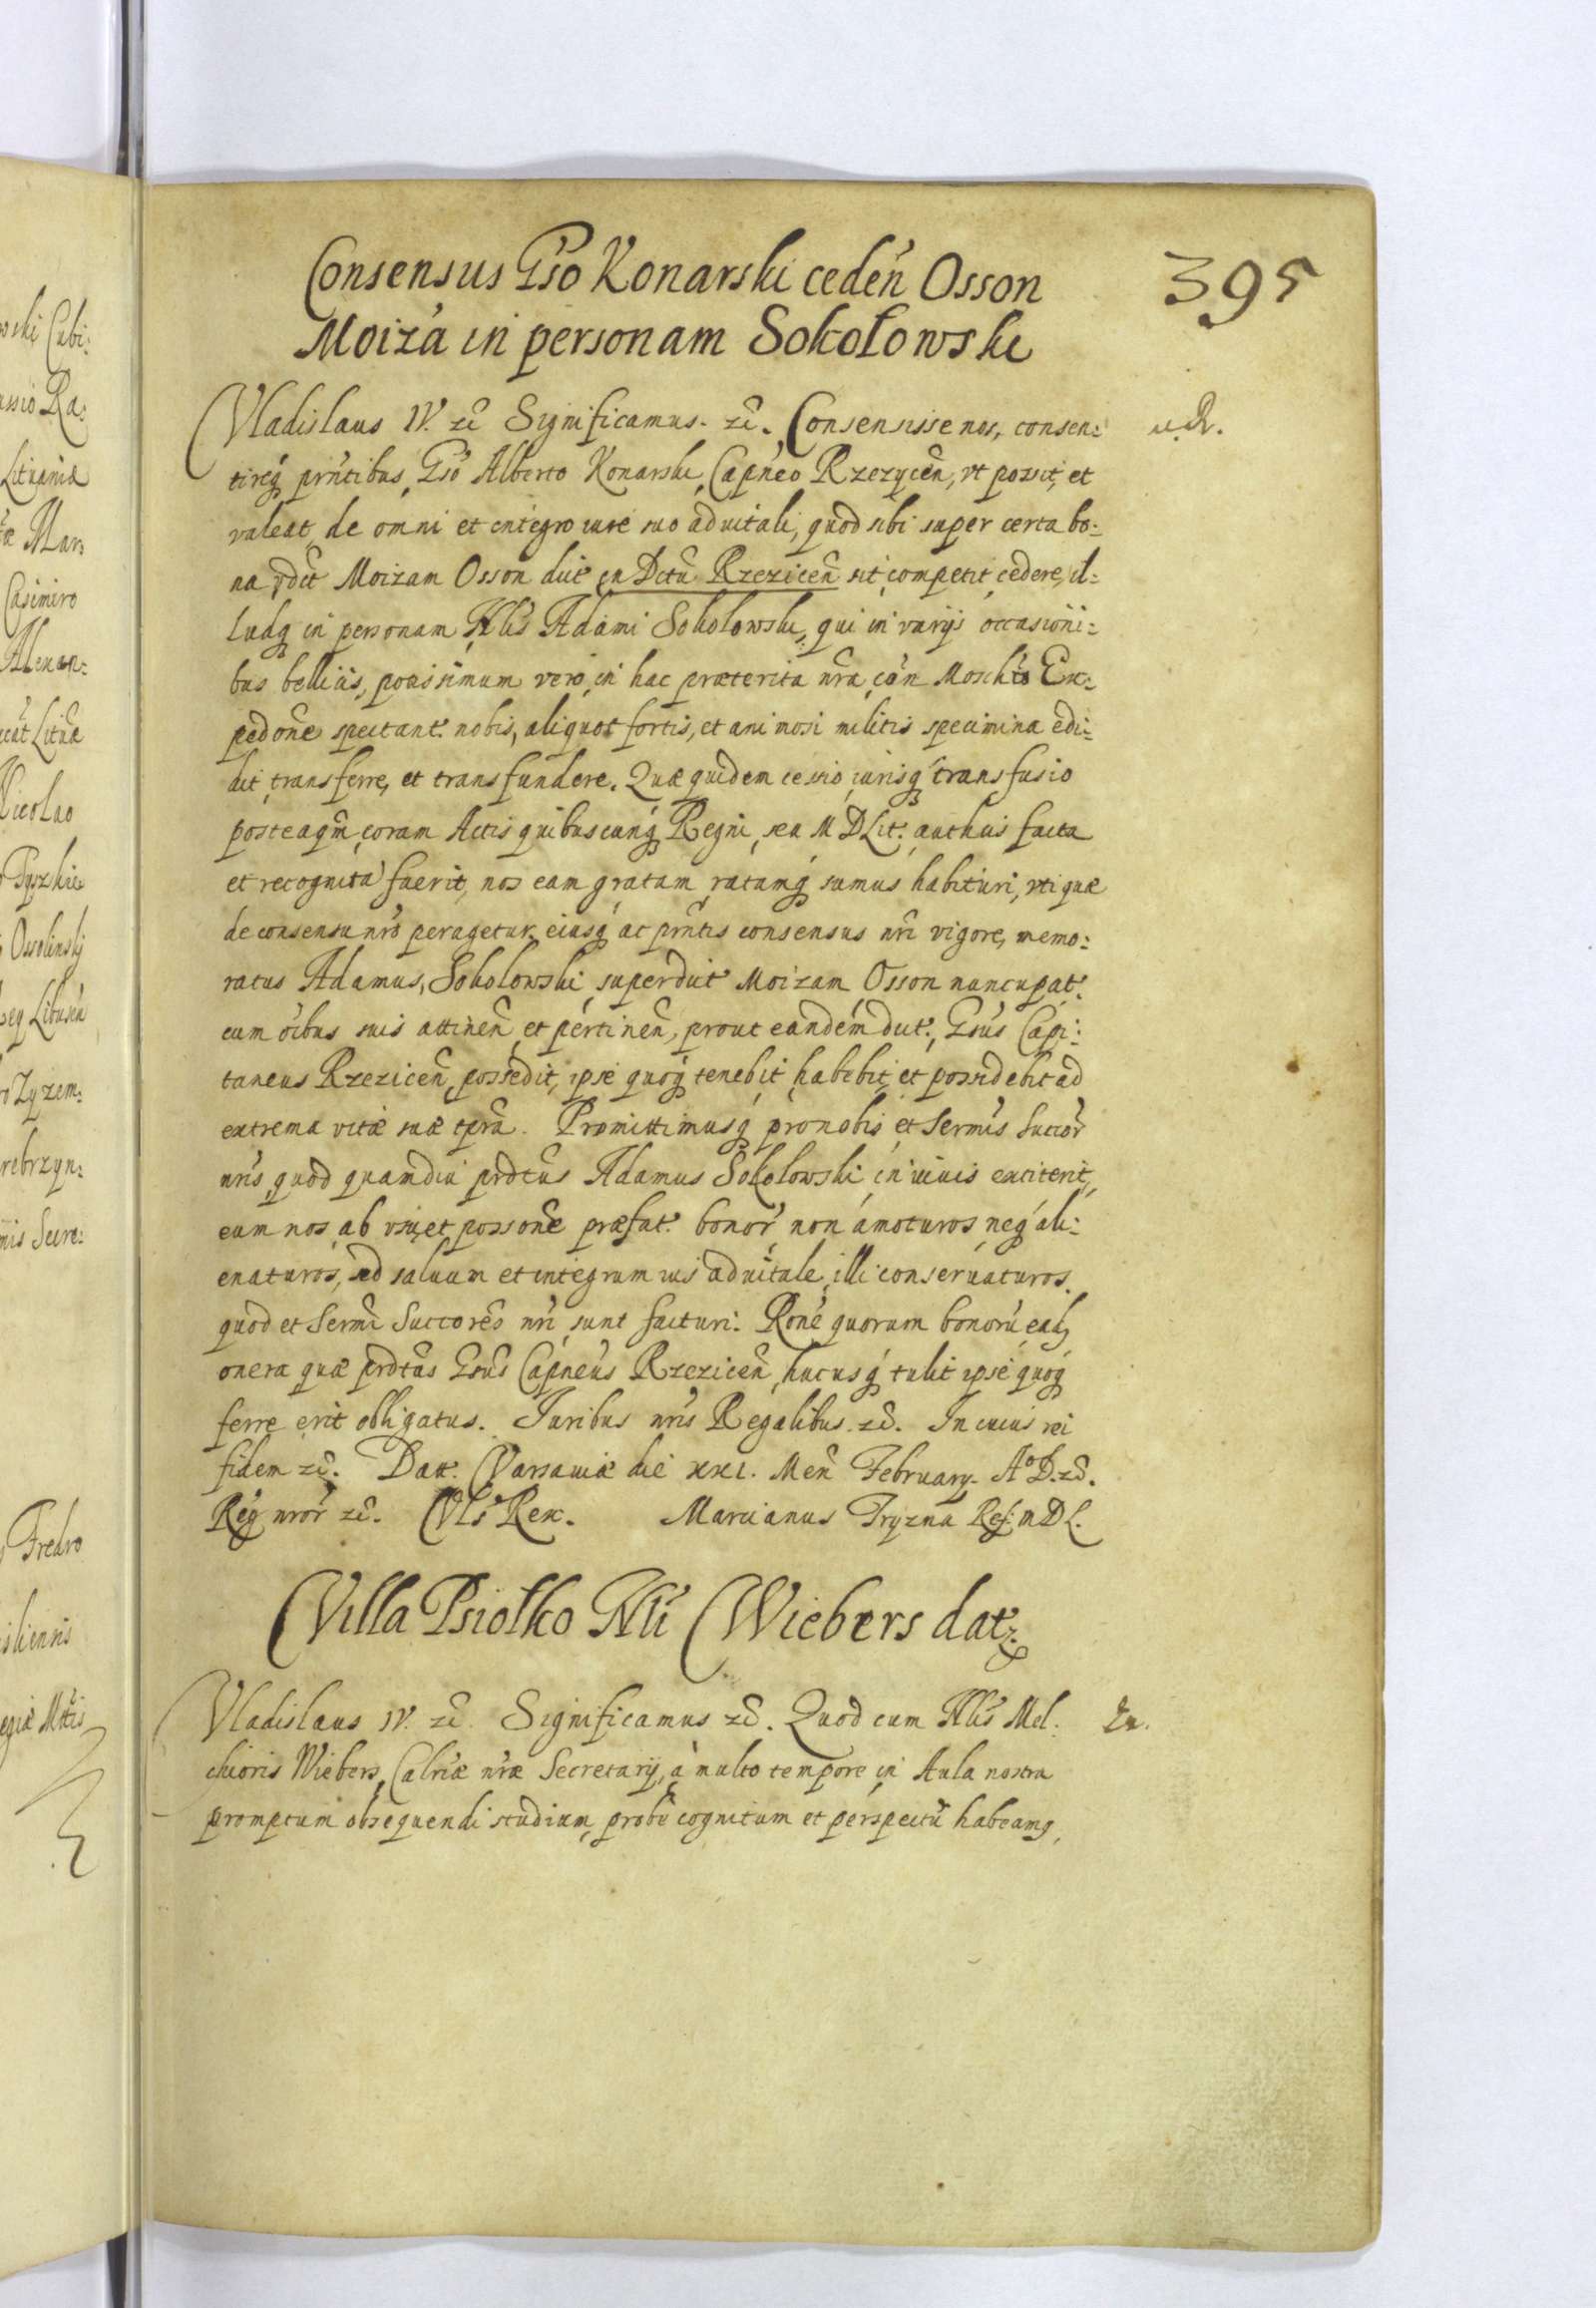 395
Consensus Gso Konarski ceden Osson
Moiza in personam Sokołowski
Vladislaus IV. &c Significamus. &c. Consensisse nos, consen:
tireq prntibus, Gso Alberto Konarski, Capneo Rzezycen, vt possit, et
valeat, de omni et integro iure suo aduitali, quod sibi super certa bo:
na vdlt Moizam Osson dict in Dctu Rzezicen sit, competit, cedere, il:
ludq in personam Nlis Adami Sokolowski, qui in varijs occasioni:
bus bellicis, potissimum vero, in hac præterita nra, con Moschos Ex:
pedone spectant. nobis, aliquot fortis, et animosi militis specimina edi:
dit, transferre, et transfundere. Quæ quidem cessio, iurisq transfusio
posteaqm, coram Actis quibuscunq Regni, seu M D Lit. authcis facta
et recognita fuerit, nos eam gratam, ratamq sumus habituri, vti quæ
de consensu nro peragetur. eiusq ac prntis consensus nri vigore, memo:
ratus Adamus, Sokolowski, superdict Moizam Osson nuncupat.
cum oibus suis attinen et pertinen, prout eandem dict. Gsus Capi:
taneus Rzezicen, possedit, ipse quoq tenebit, habebit, et possidebit ad
extrema vitæ suæ tpra. Promittimusq pro nobis et Sermis Succor
nris, quod quamdiu prdtus Adamus Sokolowski in viuis extiterit,
eum nos, ab vsu, et possone præfat. bonor non amoturos, neq ali:
enaturos, sed saluum et integrum ius aduitale, illi conseruaturos.
quod et Sermi Succores nri, sunt facturi. Rone quorum bonoru, ead
onera quæ prdtus Gsus Capneus Rzezicen, hucusq tulit ipse quoq
ferre erit obligatus. Juribus nris Regalibus. &c. In cuius rei
fidem &c. Datt. Varsauiæ die XXI. Men February. Ao D. &c.
Reg nror &c. Vls Rex. Marcianus Tryzna Ref. M D L.
Villa Psiołko Nli Wiebers dat.
Vladislaus IV. &c. Significamus &c. Quod cum Nlis Mel.
chioris Wiebers, Calriæ nræ Secretarij, à multo tempore in Aula nostra
promptum obsequendi studium, probe cognitum et perspectu habeamq,